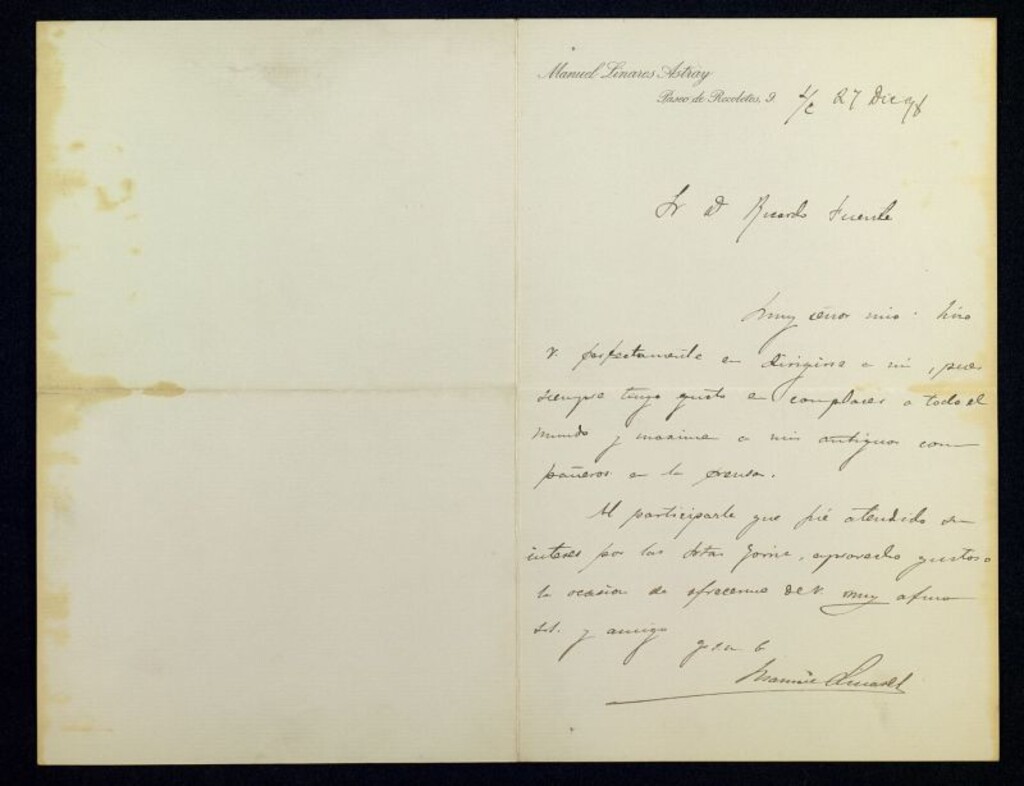 Manuel Linares Astray
Paseo de Recoletos, 9.
S/c 27 Dic 98
Sr D Ricardo Fuente
Muy señor mio: hizo
V. perfectamente en dirigirse a mi, pues
siempre tengo gusto en complacer a todo el
mundo y maxime a mis antiguos com
pañeros en la prensa.
Al participarle que fué atendido su
interes por las Srtas , aprovecho gustoso
la ocasion de ofrecerme de V. muy afmo
s.s. y amigo
q b s m
Manuel Linares A